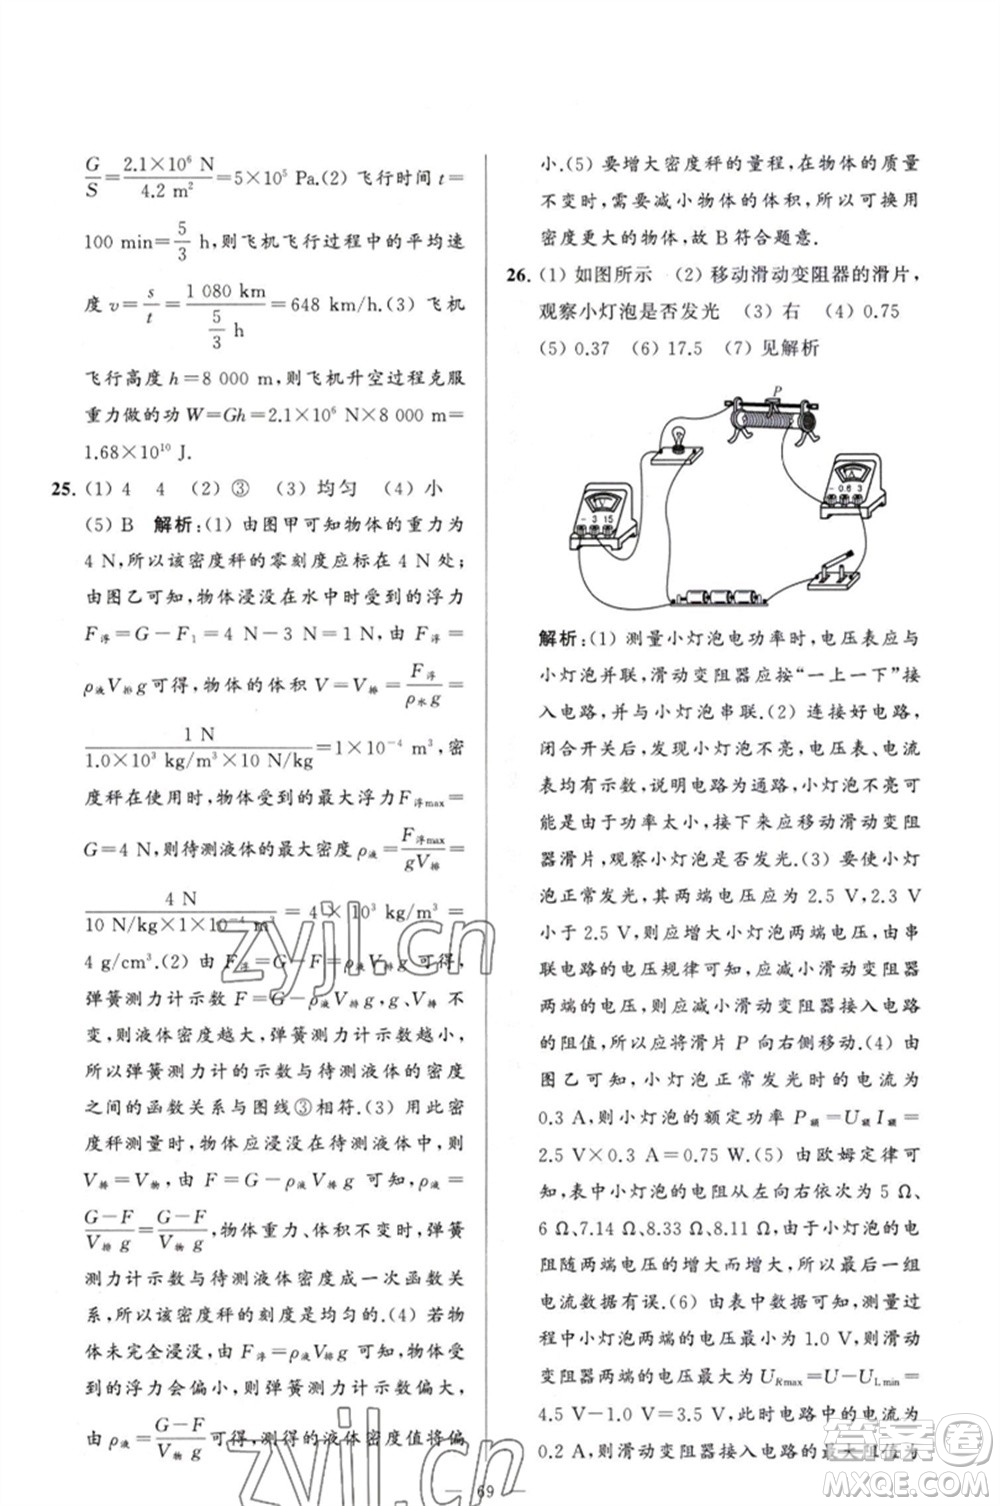 G/S=2.1×10⁶ N/4.2 m²=5×10⁵ Pa.(2) 飞行时间 t=
100 min=5/3 h,则飞机飞行过程中的平均速
度 v=s/t=1 080 km/(5/3 h)=648 km/h.(3) 飞机
飞行高度 h=8 000 m,则飞机升空过程克服
重力做的功 W=Gh=2.1×10⁶ N×8 000 m=
1.68×10¹⁰ J.
25. (1) 4 4 (2) ③ (3) 均匀 (4) 小
(5) B 解析:(1) 由图甲可知物体的重力为
4 N,所以该密度秤的零刻度应标在 4 N 处;
由图乙可知,物体浸没在水中时受到的浮力
F浮=G-F₁=4 N-3 N=1 N,由 F浮=
ρ液V排g 可得,物体的体积 V=V排=F浮/ρ水g=
1 N/(1.0×10³ kg/m³×10 N/kg)=1×10⁻⁴ m³,密
度秤在使用时,物体受到的最大浮力F浮max=
G=4 N,则待测液体的最大密度ρ液=F浮max/gV排=
4 N/(10 N/kg×1×10⁻⁴ m³)=4×10³ kg/m³=
4 g/cm³.(2) 由 F浮=G-F=ρ液V排g 可得,
弹簧测力计示数 F=G-ρ液V排g,G、V排不
变,则液体密度越大,弹簧测力计示数越小,
所以弹簧测力计的示数与待测液体的密度
之间的函数关系与图线③相符.(3) 用此密
度秤测量时,物体应浸没在待测液体中,则
V排=V物,由 F=G-ρ液V排g 可知,ρ液=
G-F/V排g=G-F/V物g,物体重力、体积不变时,弹簧
测力计示数与待测液体密度成一次函数关
系,所以该密度秤的刻度是均匀的.(4) 若物
体未完全浸没,由 F浮=ρ液V排g 可知,受到
的浮力会偏小,则弹簧测力计示数偏大,
由 ρ液=G-F/V物g可得,测得的液体密度值将偏
小.(5) 要增大密度秤的量程,在物体的质量
不变时,需要减小物体的体积,所以可换用
密度更大的物体,故 B 符合题意.
26. (1) 如图所示 (2) 移动滑动变阻器的滑片,
观察小灯泡是否发光 (3) 右 (4) 0.75
(5) 0.37 (6) 17.5 (7) 见解析
P
V
- 3 15
A
-0.6 3
解析:(1) 测量小灯泡电功率时,电压表应与
小灯泡并联,滑动变阻器应按“一上一下”接
入电路,并与小灯泡串联.(2) 连接好电路,
闭合开关后,发现小灯泡不亮,电压表、电流
表均有示数,说明电路为通路,小灯泡不亮可
能是由于功率太小,接下来应移动滑动变阻
器滑片,观察小灯泡是否发光.(3) 要使小灯
泡正常发光,其两端电压应为 2.5 V,2.3 V
小于 2.5 V,则应增大小灯泡两端电压,由串
联电路的电压规律可知,应减小滑动变阻器
两端的电压,则应减小滑动变阻器接入电路
的阻值,所以应将滑片 P 向右侧移动.(4) 由
图乙可知,小灯泡正常发光时的电流为
0.3 A,则小灯泡的额定功率 P额=U额I额=
2.5 V×0.3 A=0.75 W.(5) 由欧姆定律可
知,表中小灯泡的电阻从左往右依次为 5 Ω、
6 Ω、7.14 Ω、8.33 Ω、8.11 Ω,由于小灯泡的电
阻随两端电压的增大而增大,所以最后一组
电流数据有误.(6) 由表中数据可知,测量过
程中小灯泡两端的电压最小为 1.0 V,则滑动
变阻器两端的电压最大为 URmax=U-ULmin=
4.5 V-1.0 V=3.5 V,此时电路中的电流为
0.2 A,则滑动变阻器接入电路的最大阻值为
69
zyjl.cn
zyjl.cn
答案圈
MXQE.COM